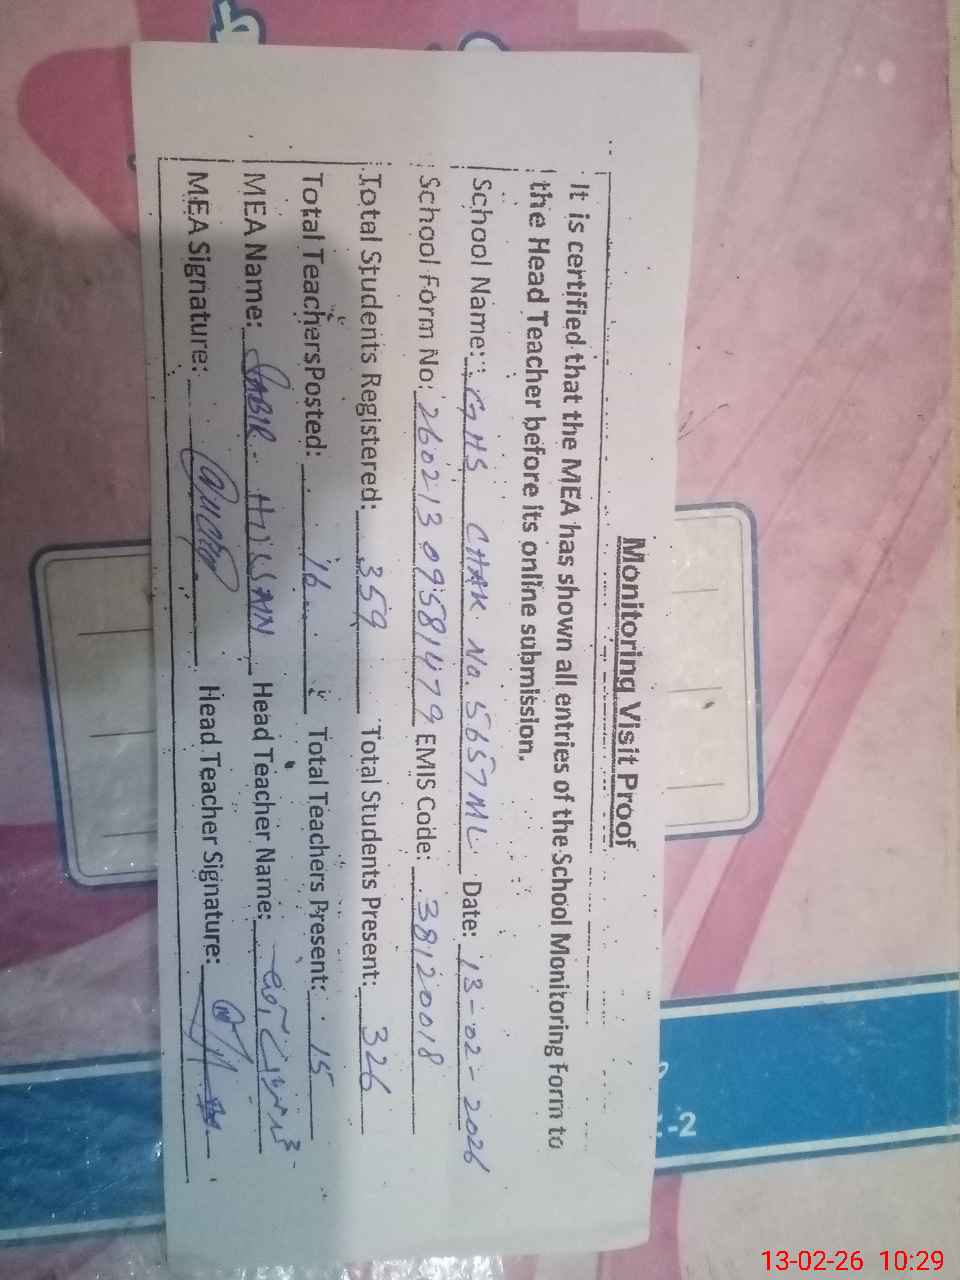 Monitoring Visit Proof
It is certified that the MEA has shown all entries of the School Monitoring Form to
the Head Teacher before its online submission.
School Name: GHS CHAK No. 5657ML Date: 13-02-2026
School Form No: 260213 09581479 EMIS Code: 38120018
Total Students Registered: 359 Total Students Present: 326
Total Teachers Posted: 16 Total Teachers Present: 15
MEA Name: SABIR HUSSAIN Head Teacher Name:
MEA Signature: Head Teacher Signature:
-2
13-02-26 10:29